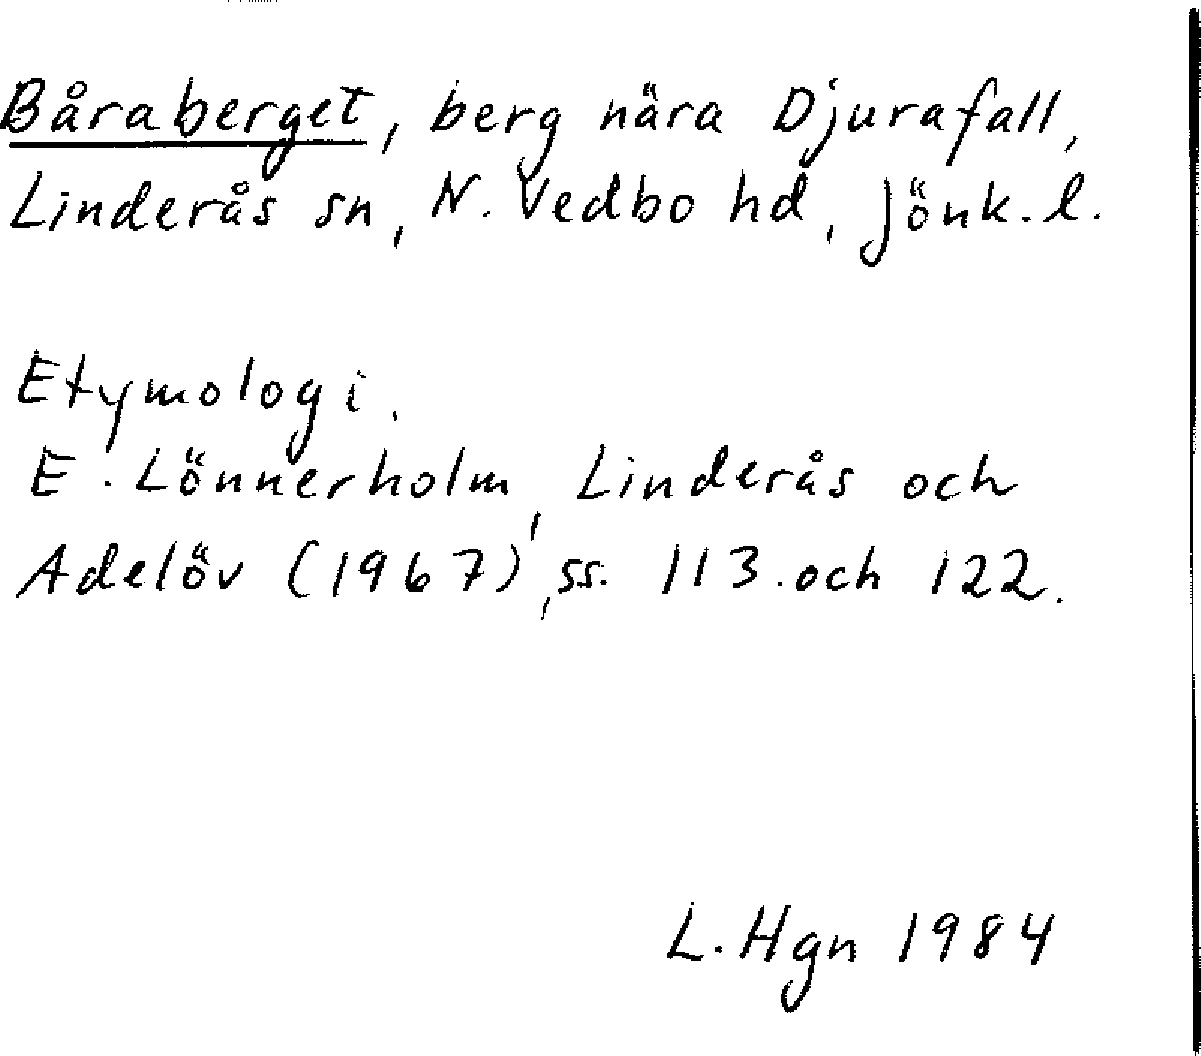 Båraberget, berg nära Djurafall,
Linderås sn, N. Vedbo hd, Jönk. l.
Etymologi.
E. Lönnerholm, Linderås och
Adelöv (1967), ss. 113 och 122.
L. Hgn 1984